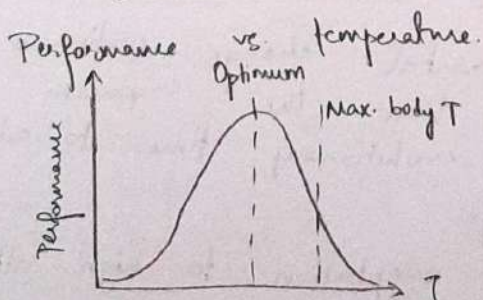 Performance vs. temperature.
Optimum
Max. body T
Performance
T